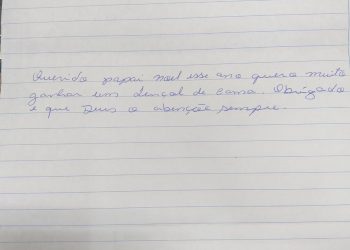 Querido papai noel esse ano quero muito
ganhar um lençol de cama. Obrigado
e que Deus o abenções sempre.